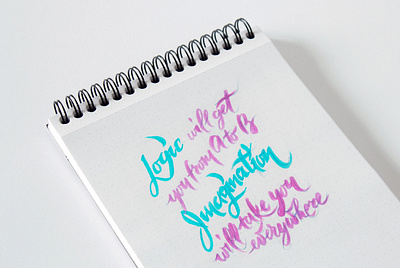 Logic will get
you from A to B
Imagination
will take you
everywhere